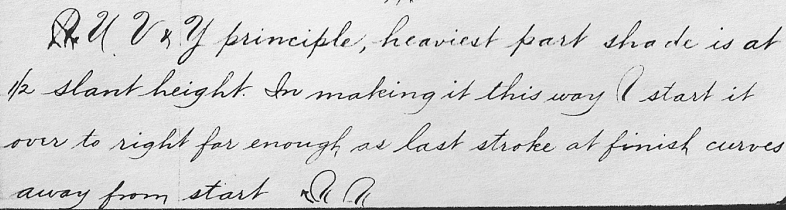 U V & Y principle, heaviest part shade is at
1/2 slant height. In making it this way I start it
over to right far enough, as last stroke at finish curves
away from start